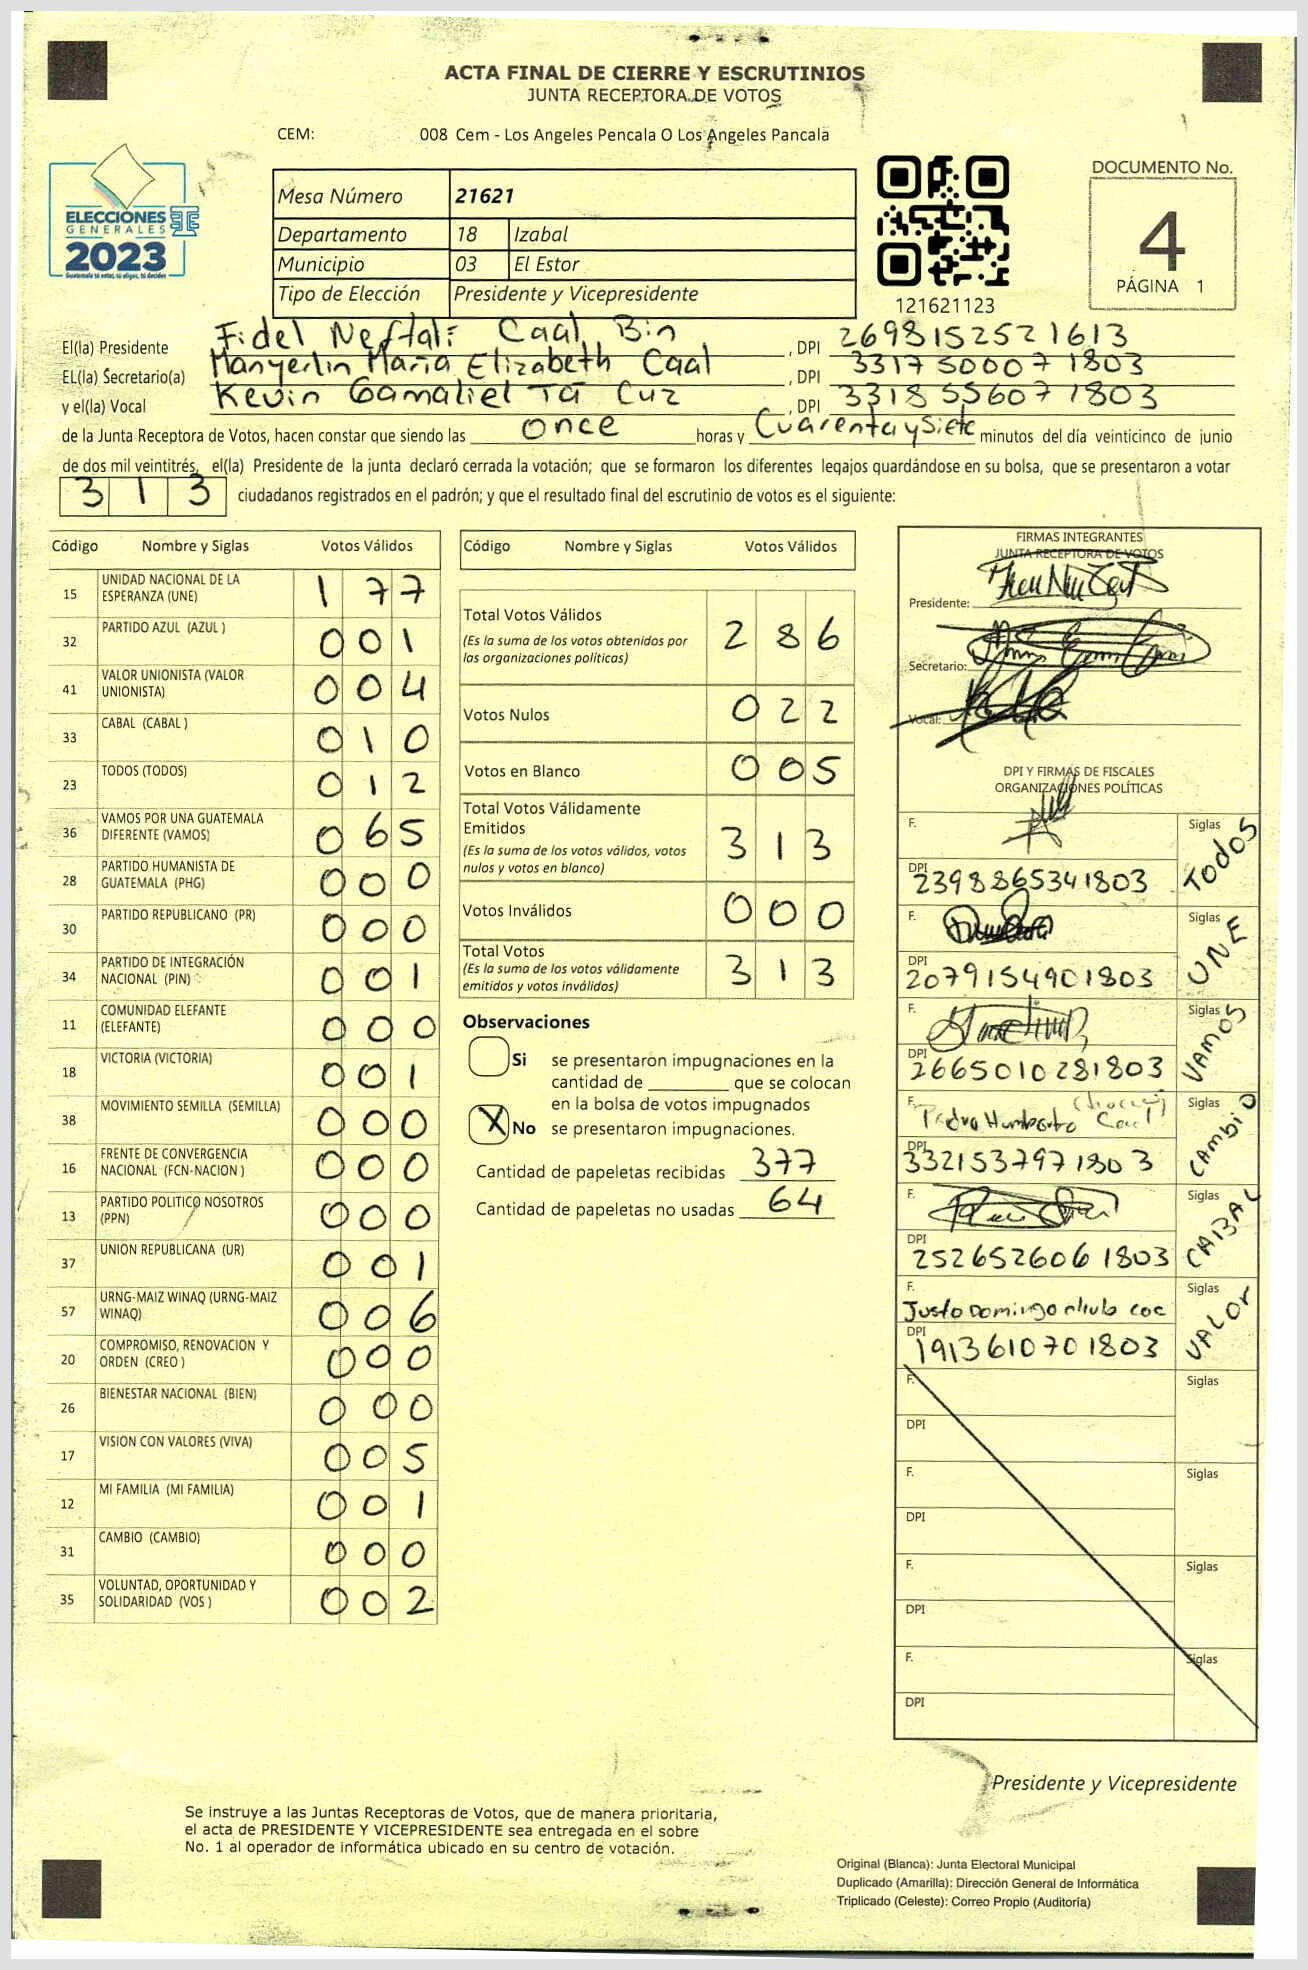 ACTA FINAL DE CIERRE Y ESCRUTINIOS
JUNTA RECEPTORA DE VOTOS
CEM: 008 Cem - Los Angeles Pencala O Los Angeles Pancala
ELECCIONES
GENERALES
2023
Guatemala tú estás, tú eliges, tú decides
Mesa Número 21621
Departamento 18 Izabal
Municipio 03 El Estor
Tipo de Elección Presidente y Vicepresidente
121621123
DOCUMENTO No.
4
PÁGINA 1
El(la) Presidente Fidel Neftali Caal Bin , DPI 2698152521613
EL(la) Secretario(a) Manyerlin Maria Elizabeth Caal , DPI 3317500071803
y el(la) Vocal Kevin Gamaliel Tá Cuz , DPI 3318556071803
de la Junta Receptora de Votos, hacen constar que siendo las once horas y Cuarenta y Siete minutos del día veinticinco de junio
de dos mil veintitrés, el(la) Presidente de la junta declaró cerrada la votación; que se formaron los diferentes legajos guardándose en su bolsa, que se presentaron a votar
313 ciudadanos registrados en el padrón; y que el resultado final del escrutinio de votos es el siguiente:
Código Nombre y Siglas Votos Válidos
15 UNIDAD NACIONAL DE LA ESPERANZA (UNE) 177
32 PARTIDO AZUL (AZUL ) 001
41 VALOR UNIONISTA (VALOR UNIONISTA) 004
33 CABAL (CABAL ) 010
23 TODOS (TODOS) 012
36 VAMOS POR UNA GUATEMALA DIFERENTE (VAMOS) 065
28 PARTIDO HUMANISTA DE GUATEMALA (PHG) 000
30 PARTIDO REPUBLICANO (PR) 000
34 PARTIDO DE INTEGRACIÓN NACIONAL (PIN) 001
11 COMUNIDAD ELEFANTE (ELEFANTE) 000
18 VICTORIA (VICTORIA) 001
38 MOVIMIENTO SEMILLA (SEMILLA) 000
16 FRENTE DE CONVERGENCIA NACIONAL (FCN-NACION ) 000
13 PARTIDO POLITICO NOSOTROS (PPN) 000
37 UNION REPUBLICANA (UR) 001
57 URNG-MAIZ WINAQ (URNG-MAIZ WINAQ) 006
20 COMPROMISO, RENOVACION Y ORDEN (CREO ) 000
26 BIENESTAR NACIONAL (BIEN) 000
17 VISION CON VALORES (VIVA) 005
12 MI FAMILIA (MI FAMILIA) 001
31 CAMBIO (CAMBIO) 000
35 VOLUNTAD, OPORTUNIDAD Y SOLIDARIDAD (VOS ) 002
Código Nombre y Siglas Votos Válidos
Total Votos Válidos 286
(Es la suma de los votos obtenidos por
las organizaciones políticas)
Votos Nulos 022
Votos en Blanco 005
Total Votos Válidamente
Emitidos 313
(Es la suma de los votos válidos, votos
nulos y votos en blanco)
Votos Inválidos 000
Total Votos 313
(Es la suma de los votos válidamente
emitidos y votos inválidos)
Observaciones
Si se presentaron impugnaciones en la
cantidad de ________ que se colocan
en la bolsa de votos impugnados
X No se presentaron impugnaciones.
Cantidad de papeletas recibidas 377
Cantidad de papeletas no usadas 64
FIRMAS INTEGRANTES
JUNTA RECEPTORA DE VOTOS
Presidente:
Secretario:
Vocal:
DPI Y FIRMAS DE FISCALES
ORGANIZACIONES POLÍTICAS
F. Siglas TODOS
DPI 2398865341803
F. Siglas UNE
DPI 2079154901803
F. Siglas VAMOS
DPI 2665010281803
F. Pedro Humberto Caal Siglas CAmbiO
DPI 3321537971803
F. Siglas CABAL
DPI 2526526061803
F. Justo Domingo coc Siglas VALOR
DPI 1913610701803
F. Siglas
DPI
F. Siglas
DPI
F. Siglas
DPI
F. Siglas
DPI
Presidente y Vicepresidente
Se instruye a las Juntas Receptoras de Votos, que de manera prioritaria,
el acta de PRESIDENTE Y VICEPRESIDENTE sea entregada en el sobre
No. 1 al operador de informática ubicado en su centro de votación.
Original (Blanca): Junta Electoral Municipal
Duplicado (Amarilla): Dirección General de Informática
Triplicado (Celeste): Correo Propio (Auditoría)